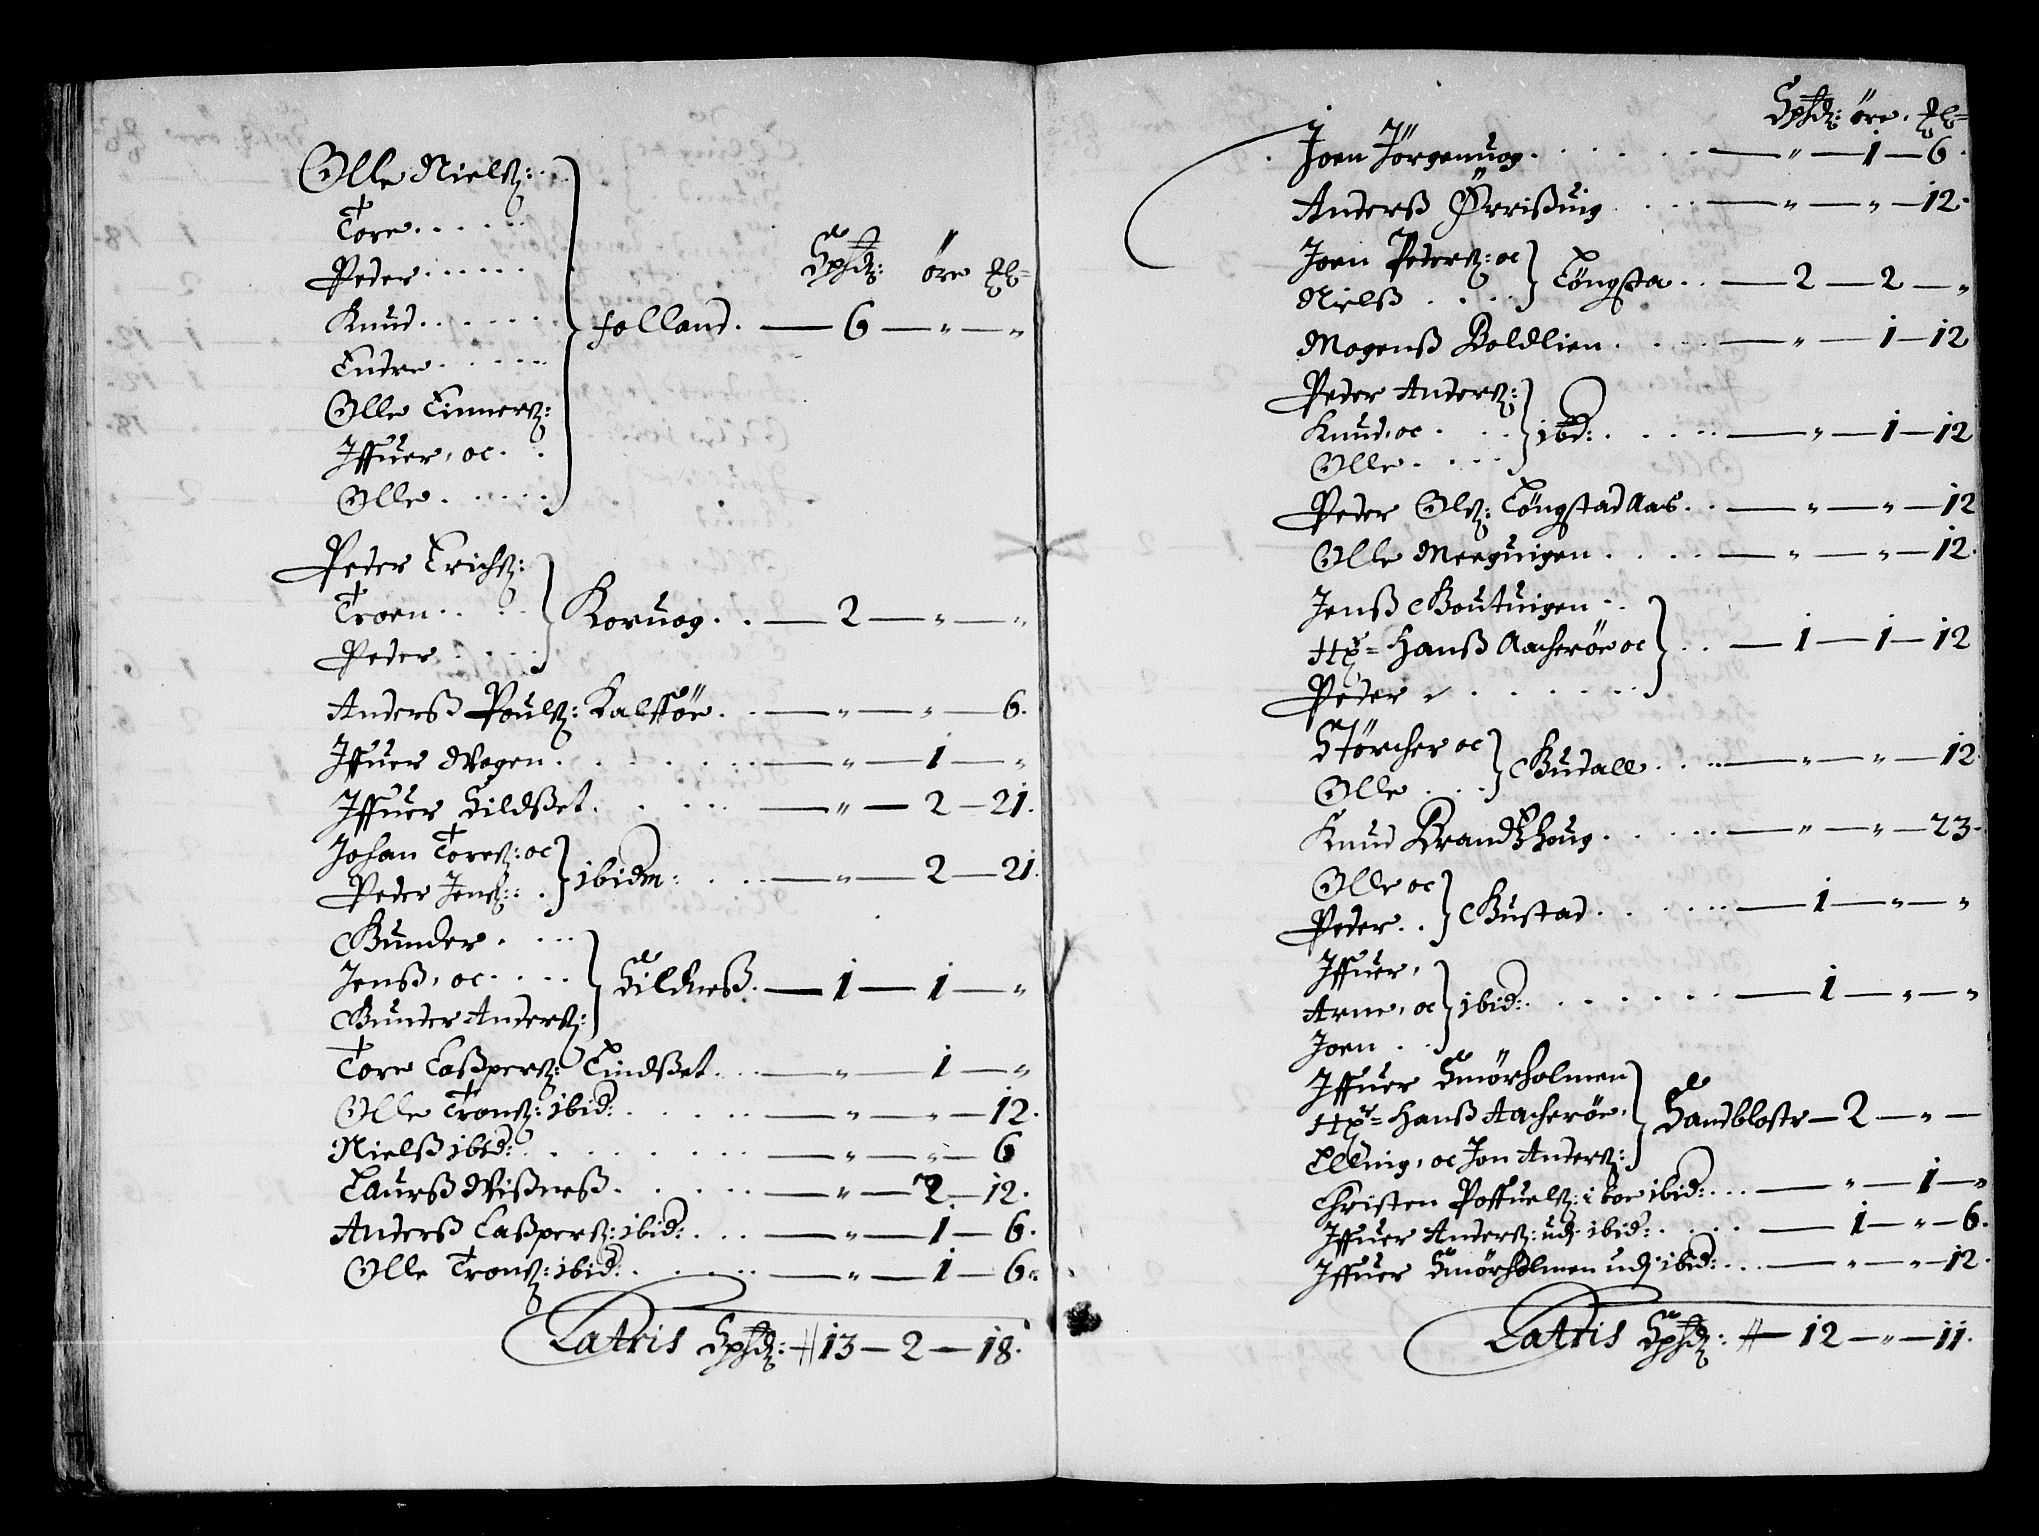 Olle Nielß:
Tore
Peder
Knud
Endre
Olle Einnerß:
Iffuer, oc
Olle
Spſd: öre
Holland. — 6 — " — "
Peder Erichß:
Troen
Peder
Koruog. — 2 — " — "
Anderß Poulß: Kalfföe — " — " — 6.
Iffuer Wogen — " — 1 — "
Iffuer Sildßet — " — 2 — 21.
Johan Toreß: oc
Peder Jenß:
ibidm: — " — 2 — 21.
Gunder
Jenß, oc
Gunder Anderß:
Sildneß — 1 — 1 — "
Tore Caßperß: Eindßet — " — 1 — "
Olle Tronß: ibid: — " — " — 12.
Nielß ibid: — " — " — 6
Laurß Wißneß — " — 2 — 12.
Anderß Caßperß: ibid: — " — 1 — 6.
Olle Tronß: ibid: — " — 1 — 6.
Latris Spſd: # 13 — 2 — 18.
Spſd: öre
Joen Jörgenuog — " — 1 — 6.
Anderß Ørrißuig — " — " — 12.
Joen Pederß: oc
Nielß
Töngsta — 2 — 2 — "
Mogenß Boldlien — " — 1 — 12
Peder Anderß:
Knud, oc
Olle
ibd: — " — 1 — 12
Peder Olß: Töngstad Aas — " — " — 12
Olle Meeguigen — " — " — 12.
Jenß Goutuigen
Hr= Hanß Aacheröe oc
Peder
— 1 — 1 — 12
Störcher oc
Olle
Gudall — " — " — 12
Knud Brandßhoug — " — " — 23.
Olle oc
Peder
Gustad — 1 — " — "
Iffuer,
Arne, oc
Joen
ibid: — 1 — " — "
Iffuer Smörholmen
Hr= Hanß Aacheröe,
Elling, oc Jon Anderß:
Sandblost — 2 — " —
Christen Poffuelß: i boe ibid: — " — 1 — "
Iffuer Anderß: udj ibid: — 1 — " — 6.
Iffuer Smörholmen udj ibid: — " — " — 12.
Latris Spſd: # — 12 — " — 11.